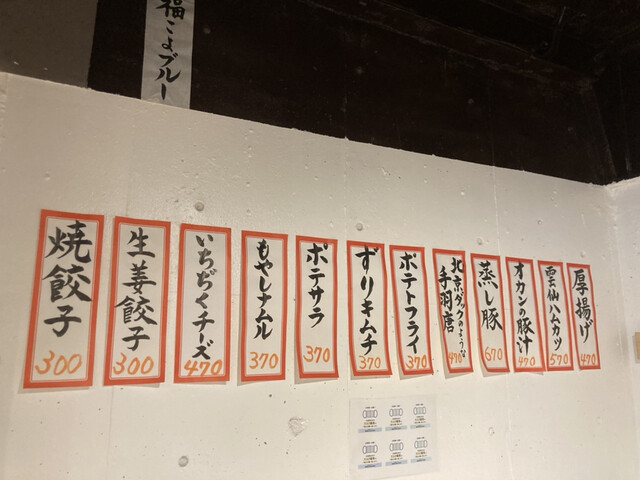 福こよブルー
焼餃子
300
生姜餃子
300
いちぢくチーズ
470
もやしナムル
370
ポテサラ
370
ずりキムチ
370
ポテトフライ
370
北京ダックのような
手羽唐
470
蒸し豚
670
オカンの豚汁
470
雲仙ハムカツ
570
厚揚げ
470